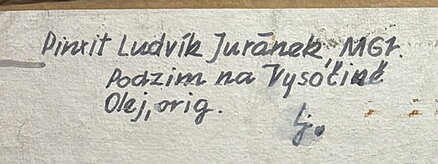 Pinxit Ludvík Juránek, MGr.
Podzim na Vysočině
Olej, orig.
Lj.